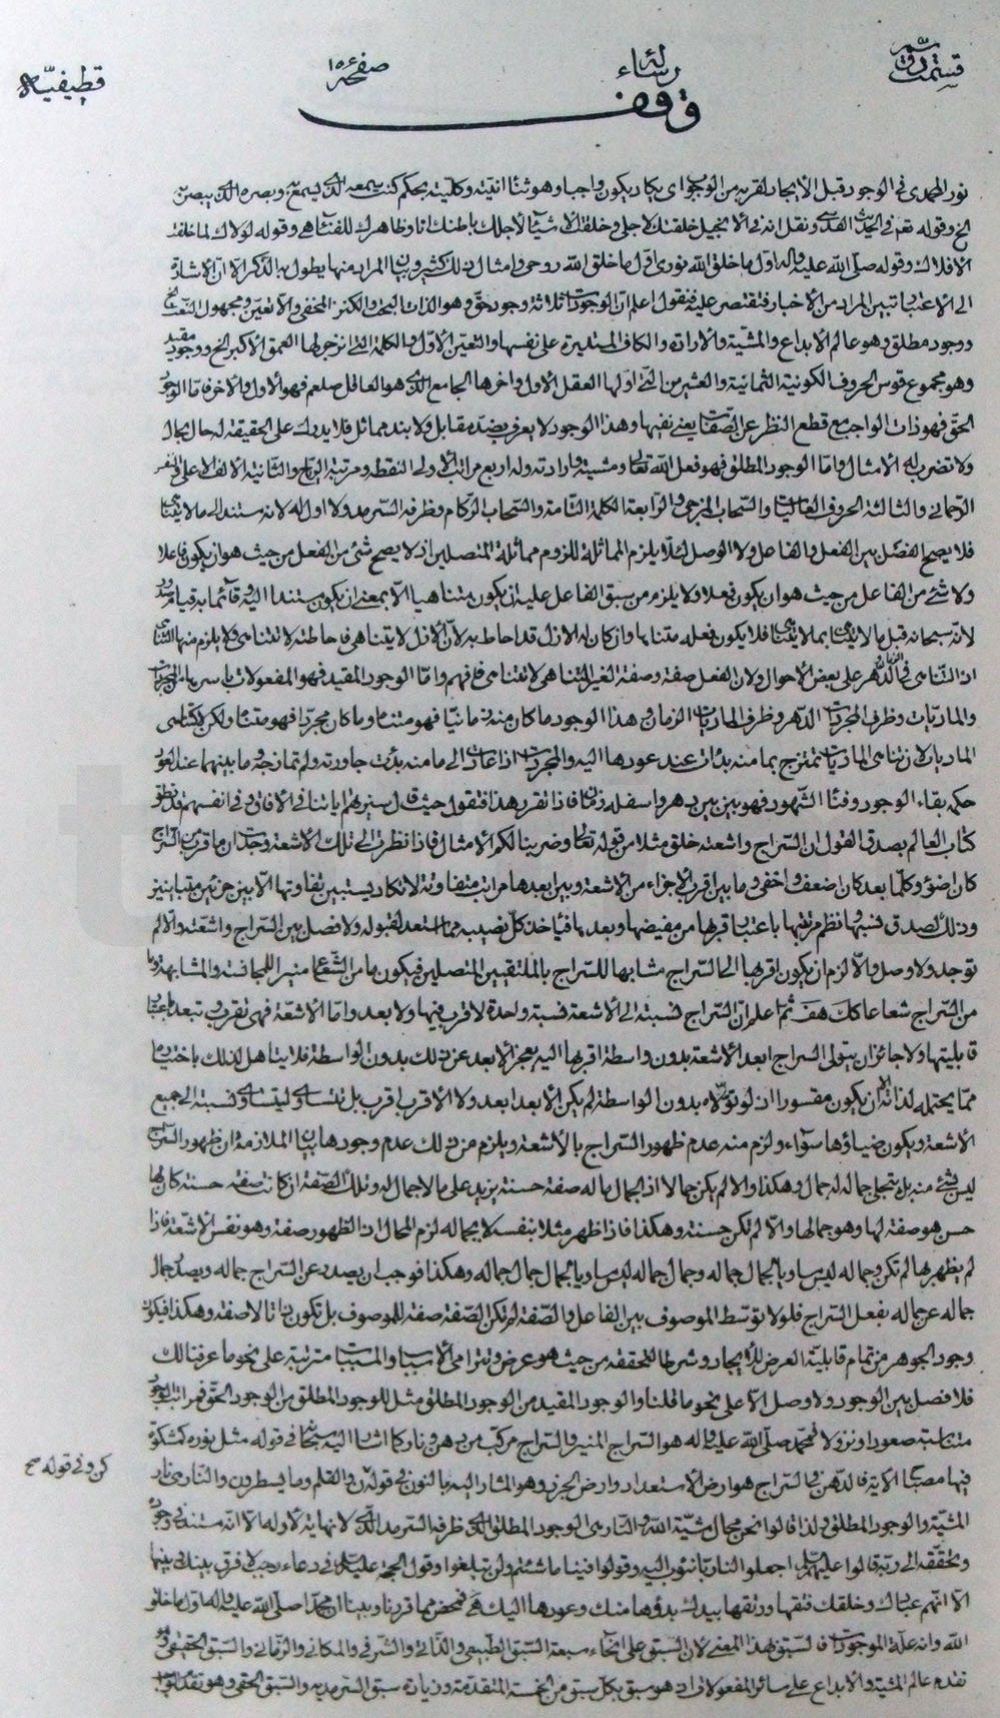 قطيفيّة
صفحه ١٥٤
رسالة
وقف
نور المحمدى فى الوجود قبل الايجاد لقربه من الوجوب اى يكاد يكون واجبا وهو كنت سمعه الذى يسمع به وبصره الذى يبصر به
الخ وقوله نعم فى الحديث القدسى ونقل انه فى الانجيل خلقتك لاجلى وخلقت الاشياء لاجلك باطنك انا وظاهرك للفناء وقوله لولاك لما خلقت
الافلاك وقوله صلى الله عليه واله اول ما خلق الله نورى اول ما خلق الله روحى وامثال ذلك كثير وبيان المراد منها يطول به الذكر الا ان الاشارة
الى الاعتبار تبين المراد من الاخبار فنقتصر عليه فنقول اعلم ان الوجودات ثلاثة وجود حق وهو الذات البحت والكنز المخفى واللاتعين ومجهول النعت
ووجود مطلق وهو عالم الابداع والمشية والارادة والكاف المستديرة على نفسها والتعين الاول والكلمة التى انزجر لها العمق الاكبر الخ ووجود مقيد
وهو مجموع قوس الحروف الكونية الثمانية والعشرين التى اولها العقل الاول واخرها الجامع الذى هو العاقل صلعم فهو الاول والاخر فاما الوجود
الحق فهو ذات الواجب مع قطع النظر عن الصفات يعنى نفيها وهذا الوجود لا يعرف بضد مقابل ولا بند مماثل فلا يدرك على الحقيقة له حال بحال
ولا تضرب له الامثال واما الوجود المطلق فهو فعل الله تعالى ومشيته وارادته وله اربع مراتب الاولى النقطة ومرتبة الرياح والثانية الالف الاعلى والنفس
الرحمانى والثالثة الحروف العاليات والسحاب المزجى والرابعة الكلمة التامة والسحاب الركام وظرفه السرمد ولا اول له لانه مستند الى ما لا يتناهى
فلا يصح الفصل بين الفعل والفاعل ولا الوصل لئلا يلزم المماثلة للزوم مماثلة المتصلين اذ لا يصح شئ من الفعل من حيث هو ان يكون فاعلا
ولا شئ من الفاعل من حيث هو ان يكون فعلا ولا يلزم من سبق الفاعل عليه ان يكون متناهيا الا بمعنى ان يكون مستندا اليه وقائما به قيام صدور
لانه سبحانه قبل ما لا يتناهى بما لا يتناهى فلا يكون فعله متناهيا وان كان له الازل قد احاط به لان الازل لا يتناهى فاحاطته لا تتناهى ولا يلزم منها التناهى
والماديات وظرف المجردات الدهر وظرف الماديات الزمان وهذا الوجود ما كان منه زمانيا فهو متناه وما كان مجردا فهو متناه ولكن لا كتناهى
الماديات لان تناهى الماديات تمتزج بما منه بدأت عند عودها اليه والمجردات اذا عادت الى ما منه بدئت جاورته ولم تمازجه وما بينهما عند العود
حكمه بقاء الوجود وفناء الشهود فهو بين بين دهر واسفله زمان فاذا تقرر هذا فنقول حيث قال سنريهم اياتنا فى الافاق وفى انفسهم قد نطق
كتاب العالم بصدق القول ان السراج واشعته خلق مثلا من قوله تعالى وضربنا لكم الامثال فاذا نظرت الى تلك الاشعة وجدت ان ما قرب من السراج
كان اضوء وكلما بعد كان اضعف واخفى وما بين اقرب الاجزاء من الاشعة وبين ابعدها مراتب متفاوتة لا تكاد يستبين تفاوتها الا بين جزئين متباينين
توجد ولا وصل والا لزم ان يكون اقربها الى السراج مشابها للسراج بالملتقيين المتصلين فيكون ما من الشعاع منيرا للمجانسة والمشابهة وما
من السراج شعاعا كل هف ثم اعلم ان السراج نسبته الى الاشعة نسبة واحدة لا قرب فيها ولا بعد واما الاشعة فهى تقرب وتبعد باعتبار
قابليتها ولا جائز ان يتولى السراج ابعد الاشعة بدون واسطة اقربها اليه لعجز الابعد عن ذلك بدون الواسطة فلا يتاهل لذلك باختيار ما
مما يحتمله لذاته الا ان يكون مقسورا اذ لو تولاه بدون الواسطة لم يكن الابعد ابعد ولا الاقرب اقرب بل تتساوى لتساوى نسبته الى جميع
الاشعة ويكون ضياؤها سواء ولزم منه عدم ظهور السراج بالاشعة ويلزم من ذلك عدم وجودها بيان الملازمة ان ظهور السراج
ليس بشئ منه بل بتجلى جماله له جمال وهكذا والا لم يكن جمالا اذ الجمال ماله صفة حسنة يزيد على ما لا جمال له وتلك الصفة ان كانت صفة حسنة كان لها
حسن هو صفة لها وهو جمالها والا لم تكن حسنة وهكذا فاذا ظهر مثلا بنفسه لا بجماله لزم المحال اذ الظهور صفة وهو نفس الاشعة فاذا
لم يظهر بها لم تكن وجماله ليس مساويا لجمال جماله وجمال جماله ليس مساويا لجمال جمال جماله وهكذا فوجب ان يصدر عن السراج جماله ويصدر جمال
جماله عن جماله بفعل السراج فلولا توسط الموصوف بين الفاعل والصفة لم تكن الصفة صفة للموصوف بل تكون ذاتا لا صفة وهكذا فيكون
وجود الجوهر من تمام قابلية العرض للايجاد وشرطا لتحققه من حيث هو عرض وترامى الاسباب والمسببات مترتبة على نحو ما عرفنالك
فلا فصل بين الوجود ولا وصل الا على نحو ما قلنا والوجود المقيد من الوجود المطلق مثل للوجود المطلق من الوجود الحق فمراتب الوجود
متناسبة صعودا ونزولا فمحمد صلى الله عليه واله هو السراج المنير والسراج مركب من دهن ونار وكما اشار اليه سبحانه فى قوله مثل نوره كمشكوة
فيها مصباح الاية فالدهن فى السراج هو ارض الاستعداد وارض الجرز وهو المشار اليه بالنون فى قوله ن والقلم وما يسطرون والنار هى نار
كن وفى قوله صح
المشية والوجود المطلق ولذا قالوا نحن محال مشية الله والنار هى الوجود المطلق الذى ظرفه السرمد الذى لا نهاية لاوله الا انه مستند فى وجوده
وتحققه الى ربه قالوا عليهم السلام اجعلوا لنا ربا نئوب اليه وقولوا فينا ما شئتم ولن تبلغوا وقول الحجة عليه السلام فى دعاء رجب لا فرق بينك وبينها
الا انهم عبادك وخلقك فتقها ورتقها بيدك بدؤها منك وعودها اليك فمحض مما قررنا وبينا ان محمدا صلى الله عليه واله اول ما خلق
الله وانه علة الموجودات فالسبق بهذا المعنى لان السبق على انحاء سبعة السبق الطبيعى والذاتى والشرفى والمكانى والزمانى والسبق الحقيقى وهو
تقدم عالم المشية والابداع على سائر المفعولات اذ هو سبق بكل سبق من الخمسة المتقدمة وزيادة سبق السرمدية والسبق الحقى وهو تقدم